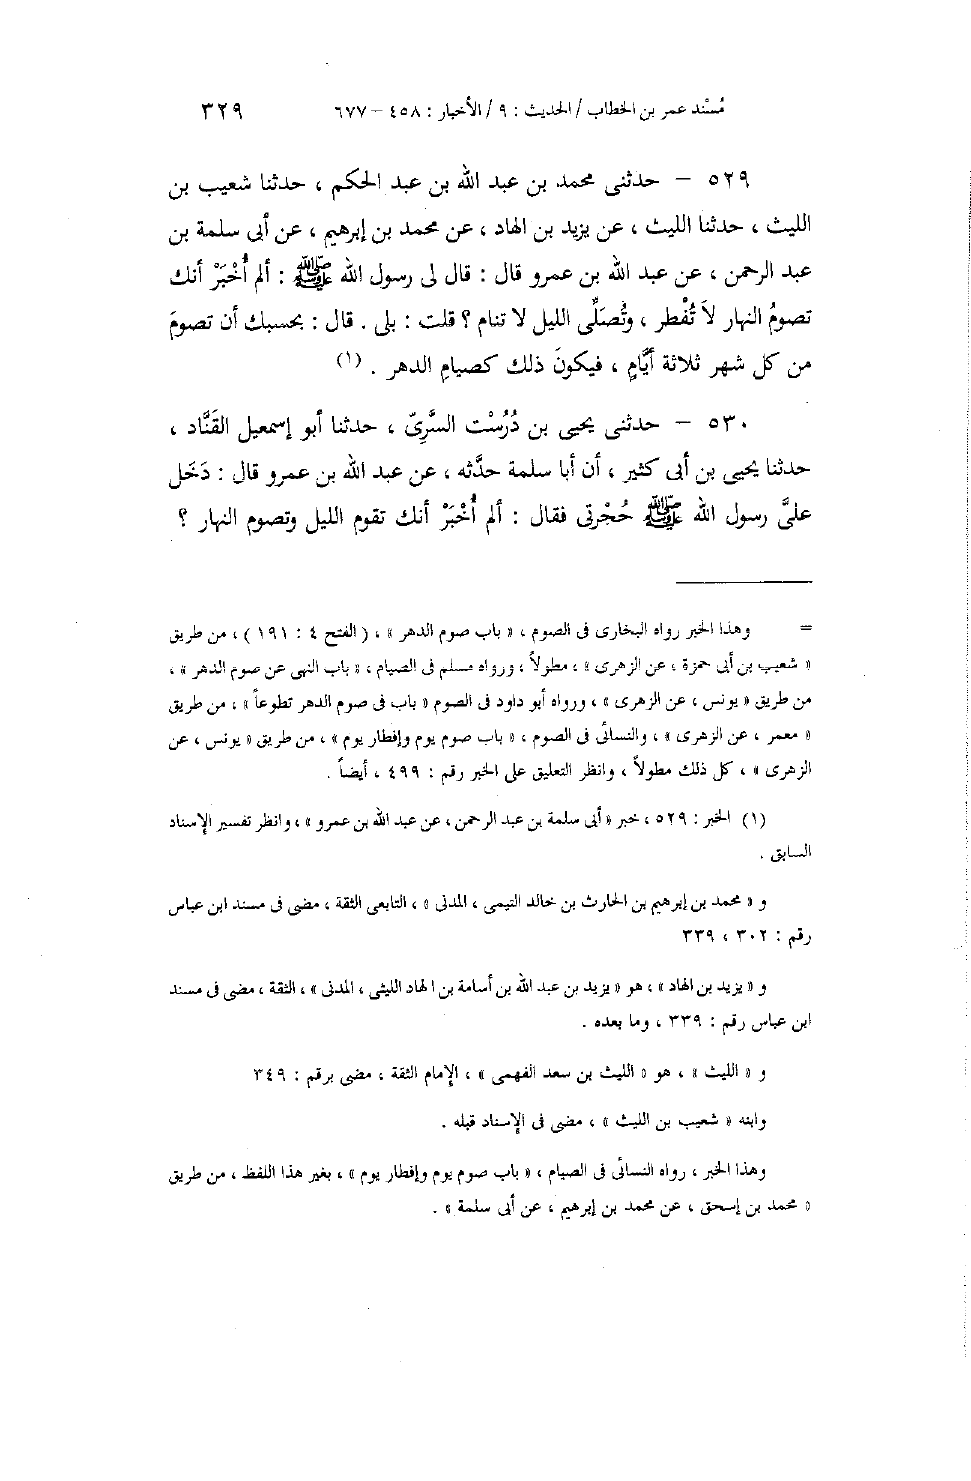 مُسْند عمر بن الخطاب / الحديث : ٩ / الأخبار : ٤٥٨ – ٦٧٧ ٣٢٩
٥٢٩ – حدثنى محمد بن عبد الله بن عبد الحكم ، حدثنا شعيب بن
الليث ، حدثنا الليث ، عن يزيد بن الهاد ، عن محمد بن إبرهيم ، عن أبى سلمة بن
عبد الرحمن ، عن عبد الله بن عمرو قال : قال لى رسول الله ﷺ : ألم أُخْبَرْ أنك
تصومُ النهار لاَ تُفْطر ، وتُصَلِّى الليل لا تنام ؟ قلت : بلى . قال : بحسبك أن تصومَ
من كل شهر ثلاثة أيَّامٍ ، فيكونَ ذلك كصيامِ الدهر . (١)
٥٣٠ – حدثنى يحيى بن دُرُسْت السَّرِىّ ، حدثنا أبو إسمعيل القَنَّاد ،
حدثنا يحيى بن أبى كثير ، أن أبا سلمة حدَّثه ، عن عبد الله بن عمرو قال : دَخَل
علىَّ رسول الله ﷺ حُجْرتى فقال : ألم أُخْبَرْ أنك تقوم الليل وتصوم النهار ؟
= وهذا الخبر رواه البخارى فى الصوم ، « باب صوم الدهر » ، ( الفتح ٤ : ١٩١ ) ، من طريق
« شعيب بن أبى حمزة ، عن الزهرى » ، مطولاً ، ورواه مسلم فى الصيام ، « باب النهى عن صوم الدهر » ،
من طريق « يونس ، عن الزهرى » ، ورواه أبو داود فى الصوم « باب فى صوم الدهر تطوعاً » ، من طريق
« معمر ، عن الزهرى » ، والنسائى فى الصوم ، « باب صوم يوم وإفطار يوم » ، من طريق « يونس ، عن
الزهرى » ، كل ذلك مطولاً ، وانظر التعليق على الخبر رقم : ٤٩٩ ، أيضاً .
(١) الخبر : ٥٢٩ ، خبر « أبى سلمة بن عبد الرحمن ، عن عبد الله بن عمرو » ، وانظر تفسير الإسناد
السابق .
و « محمد بن إبرهيم بن الحارث بن خالد التيمى ، المدنى » ، التابعى الثقة ، مضى فى مسند ابن عباس
رقم : ٣٠٢ ، ٣٣٩
و « يزيد بن الهاد » ، هو « يزيد بن عبد الله بن أسامة بن الهاد الليثى ، المدنى » ، الثقة ، مضى فى مسند
ابن عباس رقم : ٣٣٩ ، وما بعده .
و « الليث » ، هو « الليث بن سعد الفهمى » ، الإمام الثقة ، مضى برقم : ٣٤٩
وابنه « شعيب بن الليث » ، مضى فى الإسناد قبله .
وهذا الخبر ، رواه النسائى فى الصيام ، « باب صوم يوم وإفطار يوم » ، بغير هذا اللفظ ، من طريق
« محمد بن إسحق ، عن محمد بن إبرهيم ، عن أبى سلمة » .